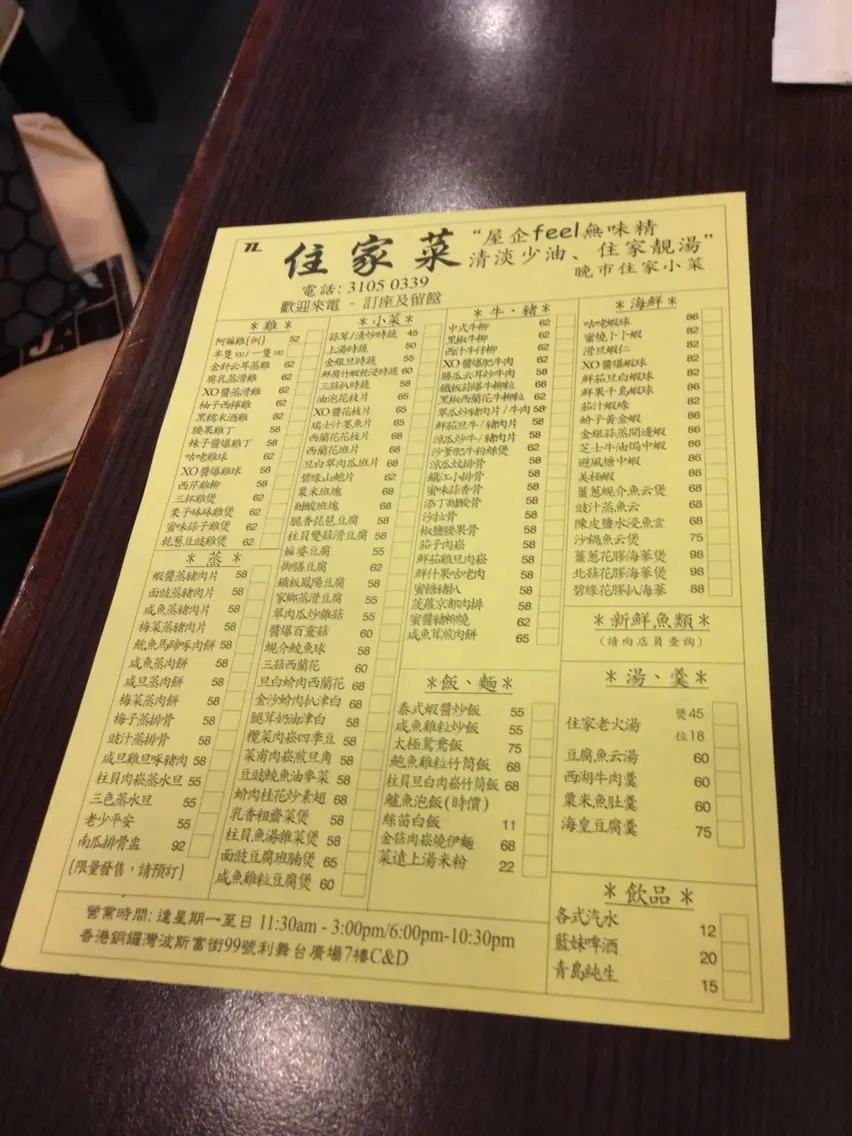 住家菜
"屋企feel無味精
清淡少油、住家靚湯"
晚市住家小菜
電話: 3105 0339
歡迎來電 - 訂座及留餸
*雞*
阿嫲雞(例) 52
半隻100/一隻190
金針雲耳蒸雞 62
腐乳蒸滑雞 62
XO醬蒸滑雞 62
柚子西檸雞 62
黑糯米酒雞 82
腰果雞丁 58
辣子醬爆雞丁 58
咕咾雞球 62
XO醬爆雞球 58
西芹雞柳 58
三杯雞煲 62
栗子砵砵雞煲 62
蜜味蒜子雞煲 62
乾葱豆豉雞煲 62
*蒸*
蝦醬蒸豬肉片 58
面豉蒸豬肉片 58
咸魚蒸豬肉片 58
梅菜蒸豬肉片 58
魷魚馬蹄啄肉餅 58
咸魚蒸肉餅 58
咸旦蒸肉餅 58
梅菜蒸肉餅 58
梅子蒸排骨 58
豉汁蒸排骨 58
咸旦雞旦啄豬肉 58
柱貝肉崧蒸水旦 55
三色蒸水旦 55
老少平安 55
南瓜排骨盅 92
(限量發售，請預訂)
*小菜*
蒜茸/清炒時蔬 45
上湯時蔬 50
金銀旦時蔬 55
鮮腐竹蝦乾浸時蔬 60
三菇扒時蔬 60
油泡花枝片 65
XO醬花枝片 65
瑞士汁墨魚片 65
西蘭花花枝片 68
西蘭花班片 68
旦白翠肉瓜班片 68
碧綠山鮑片 62
粟米班塊 68
酎酸班塊 68
脆香琵琶豆腐 58
柱貝雙菇滑豆腐 58
麻婆豆腐 55
御膳豆腐 62
鐵板鳳陽豆腐 58
家鄉蒸滑豆腐 55
翠肉瓜炒雜菇 55
醬爆百靈菇 60
蜆介鯪魚球 58
三菇西蘭花 60
旦白蚧肉西蘭花 68
金沙蚧肉扒津白 68
腿茸奶油津白 58
欖菜肉崧四季豆 58
菜甫肉崧煎旦角 58
豆豉鯪魚油麥菜 58
蚧肉桂花炒素翅 68
乳香粗齋菜煲 58
柱貝魚湯雜菜煲 58
面豉豆腐班腩煲 65
咸魚雞粒豆腐煲 60
*牛、豬*
中式牛柳 62
黑椒牛柳 62
西汁牛仔柳 62
XO醬爆肥牛肉 62
勝瓜雲耳炒牛肉 58
鐵板蒜爆牛柳粒 68
黑椒西蘭花牛柳粒 68
翠瓜炒豬肉片/牛肉 58
鮮茄旦牛/豬肉片 58
涼瓜炒牛/豬肉片 58
沙爹肥牛粉絲煲 62
涼瓜炆排骨 58
鎮江小排骨 58
蜜味蒜香骨 58
添丁酎酸骨 58
沙拉骨 58
椒鹽腰果骨 58
茄子肉崧 58
鮮茄雞旦肉崧 58
鮮什果咕咾肉 58
蜜糖豬扒 58
菠蘿京都肉排 58
蜜醬豬柳燒 62
咸魚茸煎肉餅 65
*飯、麵*
泰式蝦醬炒飯 55
咸魚雞粒炒飯 55
太極鴛鴦飯 75
鮑魚雞粒竹筒飯 68
柱貝旦白肉崧竹筒飯 68
鱸魚泡飯(時價)
絲苗白飯 11
金菇肉崧燒伊麵 68
菜遠上湯米粉 22
*海鮮*
咕咾蝦球 86
蜜燒卜卜蝦 86
滑旦蝦仁 82
XO醬爆蝦球 82
鮮茄旦白蝦球 86
鮮果千島蝦球 86
茄汁蝦碌 82
蚧子黃金蝦 82
金銀蒜蒸開邊蝦 82
芝士牛油焗中蝦 82
避風塘中蝦 82
美極蝦 82
薑蔥蜆介魚雲煲 68
豉汁蒸魚雲 68
陳皮鹽水浸魚雲 68
沙鍋魚雲煲 75
薑蔥花膠海蔘煲 98
北菇花膠海蔘煲 98
碧綠花膠扒海蔘 88
*新鮮魚類*
(請向店員查詢)
*湯、羹*
住家老火湯 煲45
位18
豆腐魚雲湯 60
西湖牛肉羹 60
粟米魚肚羹 60
海皇豆腐羹 75
*飲品*
各式汽水 12
藍妹啤酒 20
青島純生 15
營業時間: 逢星期一至日 11:30am - 3:00pm/6:00pm-10:30pm
香港銅鑼灣波斯富街99號利舞台廣場7樓C&D